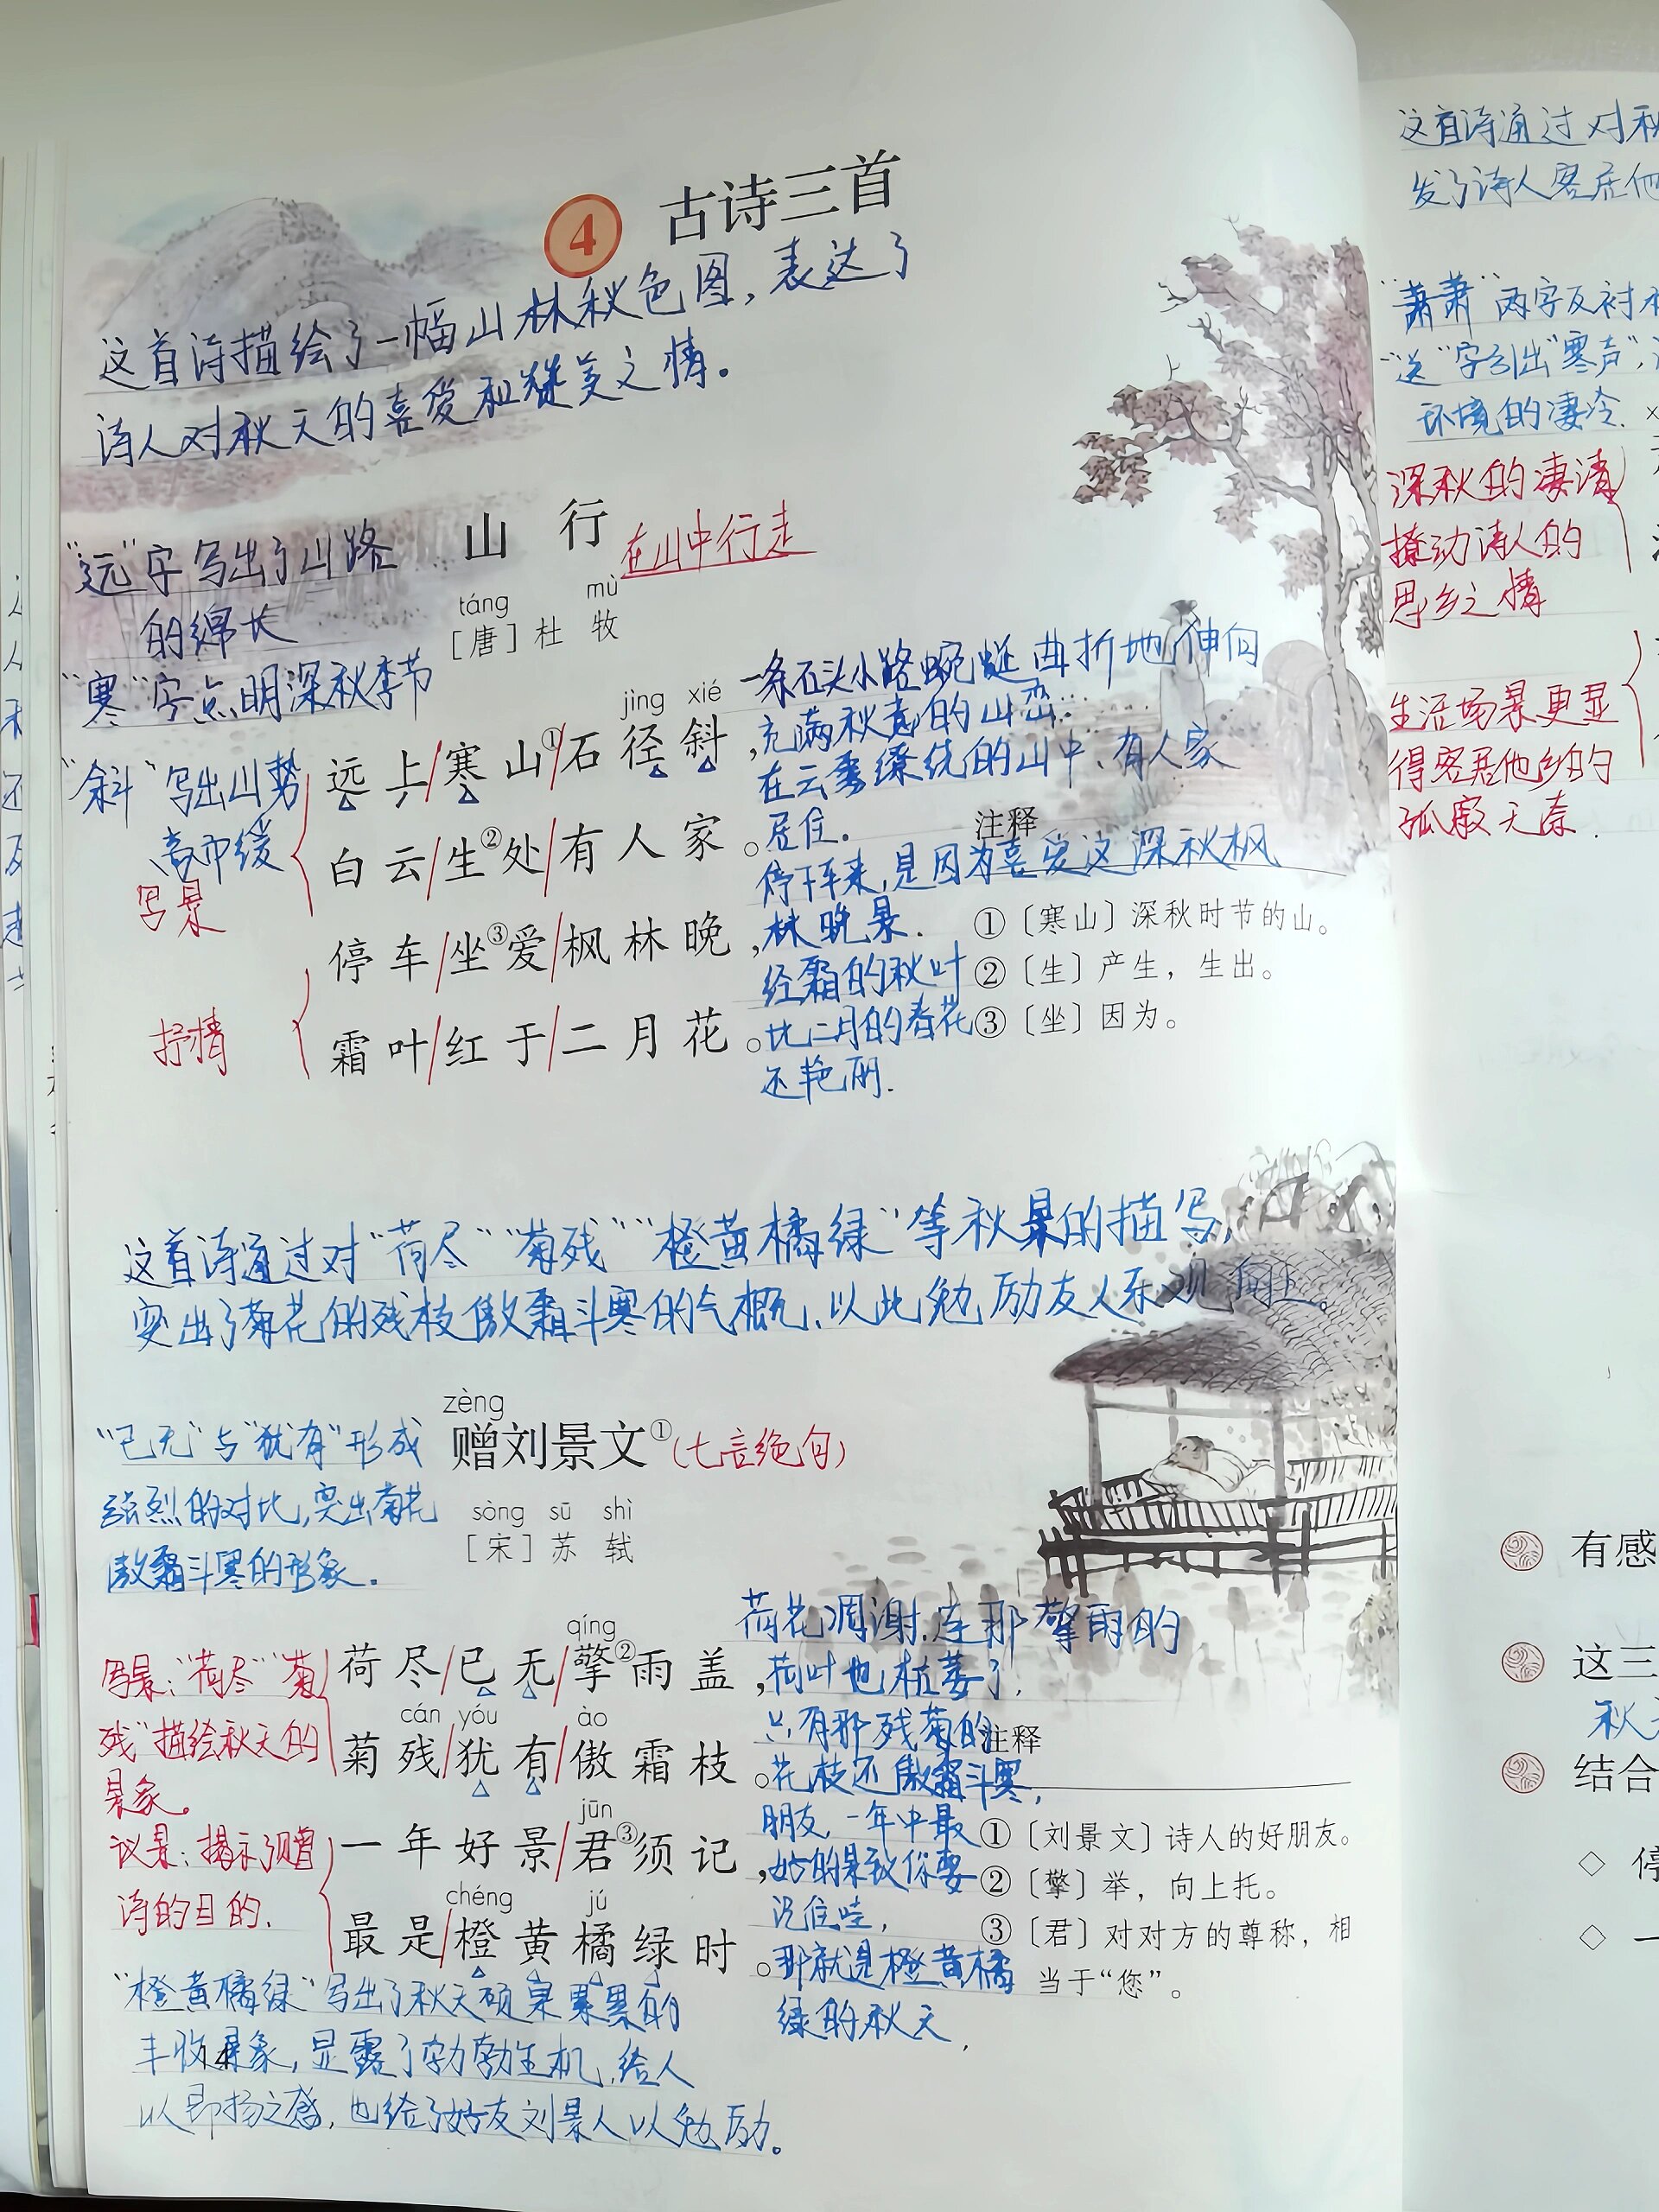 4 古诗三首
这首诗描绘了一幅山林秋色图，表达了
诗人对秋天的喜爱和赞美之情。
山行 在山中行走
táng mù
[唐] 杜牧
“远”字写出了山路
的绵长
“寒”字点明深秋季节
“斜”写出山势
高而缓
写景
抒情
jìng xié
远上/寒山①/石径斜，
白云/生②处/有人家。
停车/坐③爱/枫林晚，
霜叶/红于/二月花。
一条石头小路蜿蜒曲折地伸向
充满秋意的山峦.
在云雾缭绕的山中，有人家
居住。
停下车来，是因为喜爱这深秋枫
林晚景.
经霜的秋叶
比二月的春花
还艳丽.
注释
①〔寒山〕深秋时节的山。
②〔生〕产生，生出。
③〔坐〕因为。
这首诗通过对“荷尽”“菊残”“橙黄橘绿”等秋景的描写，
突出了菊花的残枝傲霜斗寒的气概，以此勉励友人乐观向上。
zèng
赠刘景文①（七言绝句）
sòng sū shì
[宋] 苏轼
“已无”与“犹有”形成
强烈的对比，突出菊花
傲霜斗寒的形象。
写景：“荷尽”“菊
残”描绘秋天的
景象。
议景：揭示了赠
诗的目的.
qíng
荷尽/已无/擎②雨盖，
cán yóu ào
菊残/犹有/傲霜枝。
jūn
一年好景/君③须记，
chéng jú
最是/橙黄橘绿时。
荷花凋谢，连那擎雨的
荷叶也枯萎了，
只有那残菊的
花枝还傲霜斗寒，
朋友，一年中最
好的景致你要
记住哇，
那就是橙黄橘
绿的秋天，
注释
①〔刘景文〕诗人的好朋友。
②〔擎〕举，向上托。
③〔君〕对对方的尊称，相
当于“您”。
“橙黄橘绿”写出了秋天硕果累累的
丰收景象，显露了勃勃生机，给人
以昂扬之感，也给了好友刘景人以勉励。
这首诗通过对秋
发了诗人客居他
“萧萧”两字反衬
“送”字引出“寒声”，
环境的凄冷.
深秋的凄清
撩动诗人的
思乡之情
生活场景更显
得客居他乡的
孤寂无奈.
有感
这三
秋天
结合
停
一